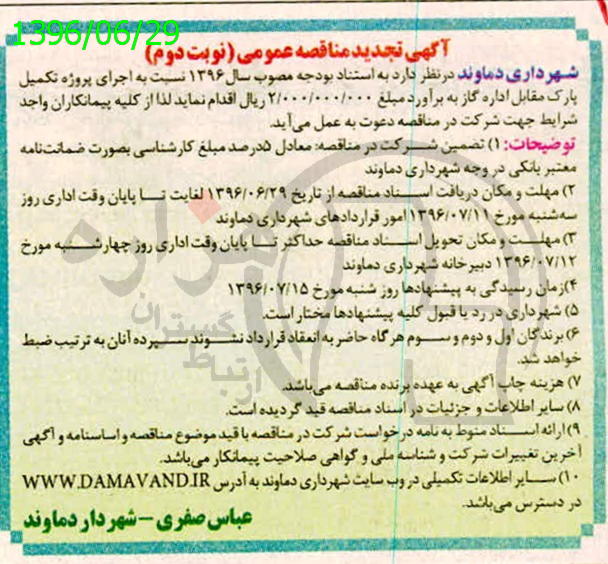 1396/06/29
آگهی تجدید مناقصه عمومی (نوبت دوم)
شهرداری دماوند در نظر دارد به استناد بودجه مصوب سال ۱۳۹۶ نسبت به اجرای پروژه تکمیل
پارک مقابل اداره گاز به برآورد مبلغ ۲/۰۰۰/۰۰۰/۰۰۰ ریال اقدام نماید لذا از کلیه پیمانکاران واجد
شرایط جهت شرکت در مناقصه دعوت به عمل می‌آید.
توضیحات: ۱) تضمین شرکت در مناقصه: معادل ۵درصد مبلغ کارشناسی بصورت ضمانت‌نامه
معتبر بانکی در وجه شهرداری دماوند
۲) مهلت و مکان دریافت اسناد مناقصه از تاریخ ۱۳۹۶/۰۶/۲۹ لغایت تا پایان وقت اداری روز
سه‌شنبه مورخ ۱۳۹۶/۰۷/۱۱ امور قراردادهای شهرداری دماوند
۳) مهلت و مکان تحویل اسناد مناقصه حداکثر تا پایان وقت اداری روز چهارشنبه مورخ
۱۳۹۶/۰۷/۱۲ دبیرخانه شهرداری دماوند
۴)زمان رسیدگی به پیشنهادها روز شنبه مورخ ۱۳۹۶/۰۷/۱۵
۵) شهرداری در رد یا قبول کلیه پیشنهادها مختار است.
۶) برندگان اول و دوم و سوم هرگاه حاضر به انعقاد قرارداد نشوند سپرده آنان به ترتیب ضبط
خواهد شد.
۷) هزینه چاپ آگهی به عهده برنده مناقصه می‌باشد.
۸) سایر اطلاعات و جزئیات در اسناد مناقصه قید گردیده است.
۹)ارائه اسناد منوط به نامه درخواست شرکت در مناقصه با قید موضوع مناقصه و اساسنامه و آگهی
آخرین تغییرات شرکت و شناسه ملی و گواهی صلاحیت پیمانکار می‌باشد.
۱۰) سایر اطلاعات تکمیلی در وب سایت شهرداری دماوند به آدرس WWW.DAMAVAND.IR
در دسترس می‌باشد.
عباس صفری - شهردار دماوند
هزاره
گستران
ارتباط